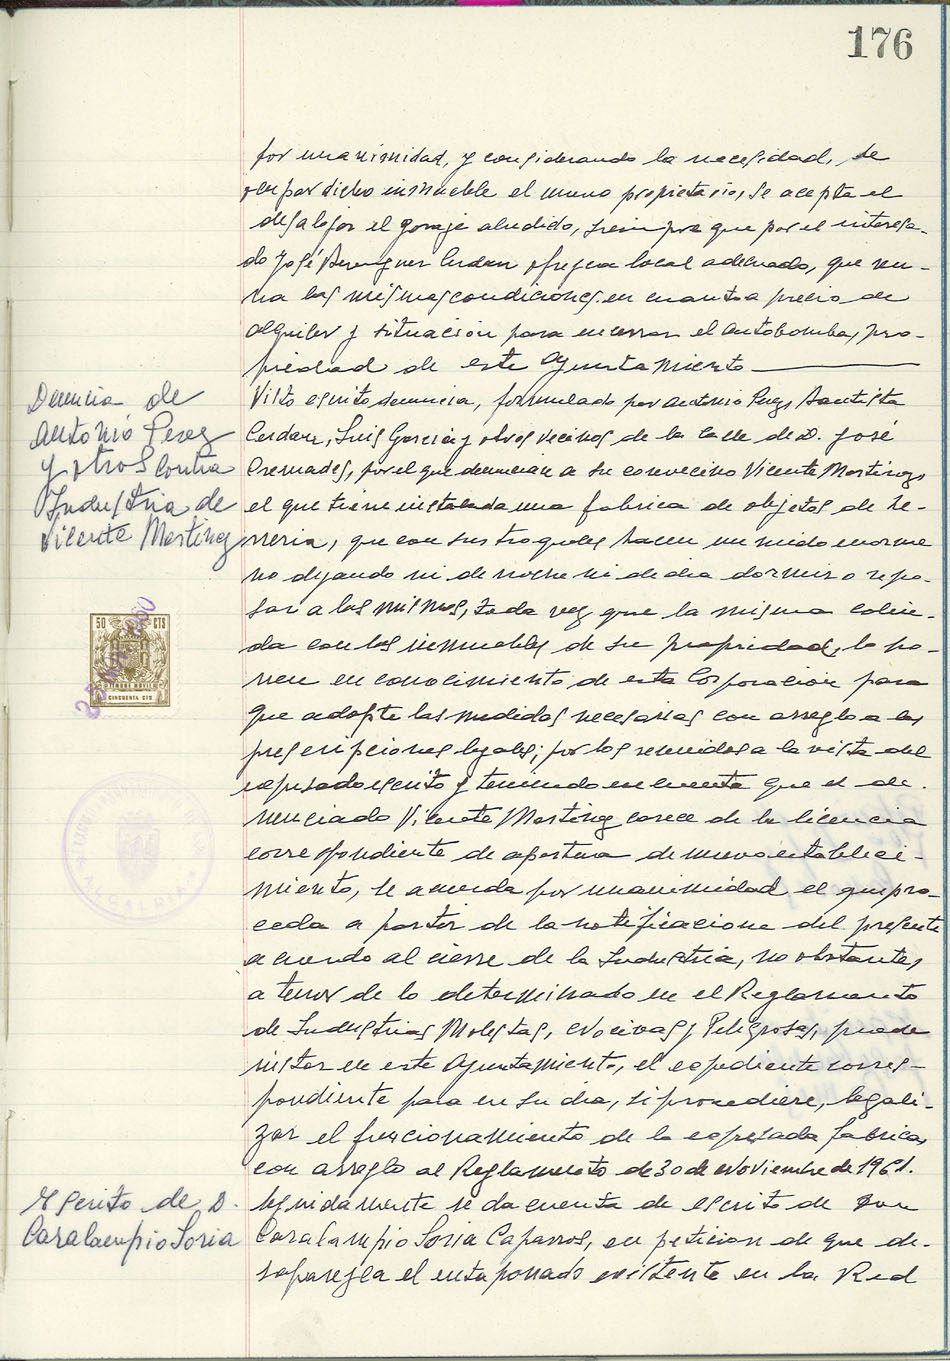 176
por unanimidad, y considerando la necesidad, de
que por dicho inmueble el mismo propietario, se acepta el
desalojar el garaje aludido, siempre que por el interesa-
do José Berenguer Cerdan ofrezca local adecuado, que reu-
na las mismas condiciones en cuanto a precio de
alquiler y situación para encerrar el autobomba, pro-
piedad de este Ayuntamiento
Denuncia de
Antonio Perez
y otros contra
Industria de
Vicente Martinez
Visto escrito denuncia, formulado por Antonio Bautista
Cerdan, Luis Garcia y otros vecinos de la calle de D. José
Cremades, por el que denuncian a su convecino Vicente Martinez
el que tiene instalada una fabrica de objetos de he-
rreria, que con sus troqueles hacen un ruido enorme
no dejando ni de noche ni de dia dormir o repo-
sar a los mismos, toda vez que la misma colin-
da con los inmuebles de su propiedad, lo po-
nen en conocimiento de esta Corporacion para
que adopte las medidas necesarias con arreglo a las
prescripciones legales; por los reunidos a la vista del
expresado escrito y teniendo en cuenta que el de-
nunciado Vicente Martinez carece de la licencia
correspondiente de apertura de nuevo estableci-
miento, se acuerda por unanimidad el que pro-
ceda a partir de la notificacione del presente
acuerdo al cierre de la Industria, no obstante,
a tenor de lo determinado en el Reglamento
de Industrias Molestas, Nocivas y Peligrosas, puede
instar en este Ayuntamiento, el expediente corres-
pondiente para en su dia, si procediere, legali-
zar el funcionamiento de la expresada fabrica,
con arreglo al Reglamento de 30 de Noviembre de 1961.
50 CTS
TIMBRE MOVIL
CINCUENTA CTS
ALCALDIA
Escrito de D.
Caralampio Soria
Seguidamente se da cuenta de escrito de Don
Caralampio Soria Caparros, en peticion de que de-
saparezca el entaponado existente en la Red